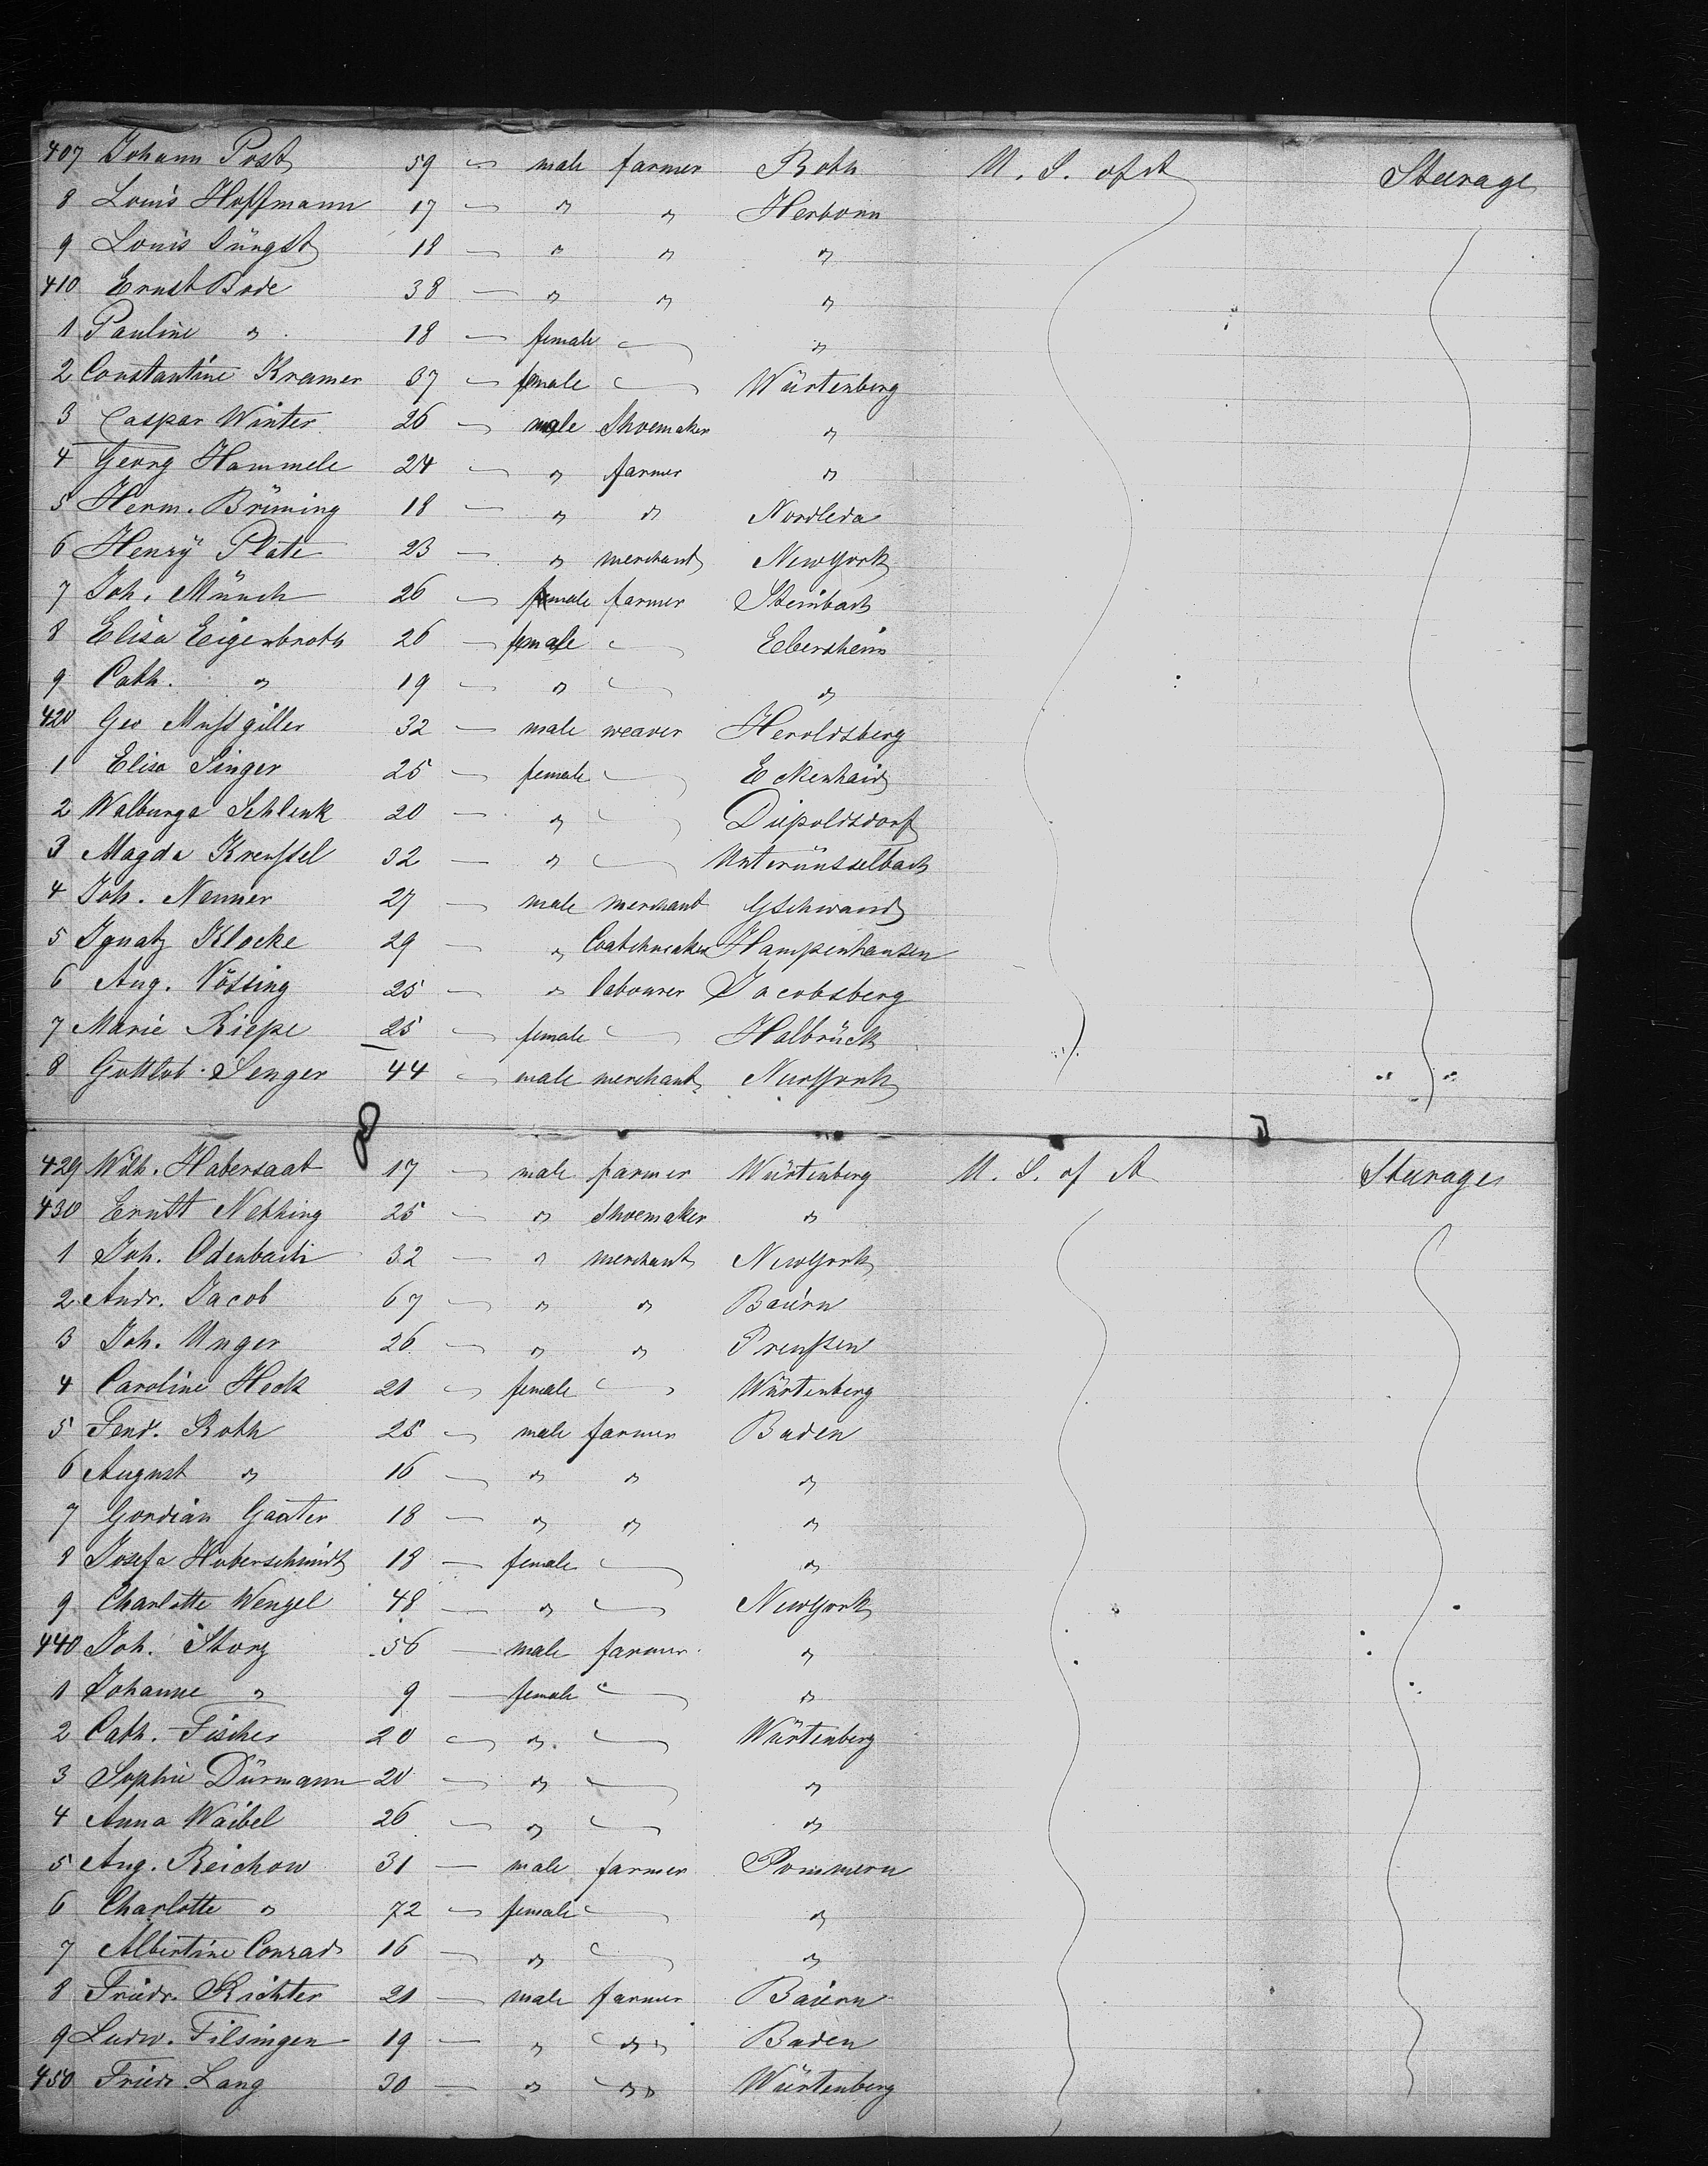 407 Johann Post 59 — male farmer Roth U. S. of A Steerage
8 Louis Hoffmann 17 — " " Herborn
9 Louis Süngst 18 — " " "
410 Ernst Bode 38 — " " "
1 Pauline " 18 — female — "
2 Constantine Kramer 37 — female — Würtenberg
3 Caspar Winter 26 — male Shoemaker "
4 Georg Hammele 24 — " farmer "
5 Herm. Brüming 18 — " " Nordleda
6 Henry Plate 23 — " merchant NewYork
7 Joh. Münch 26 — male farmer Steinbach
8 Elisa Eigenbroth 26 — female — Ebersheim
9 Cath. " 19 — " — "
420 Geo Mußgiller 32 — male weaver Heroldsberg
1 Elisa Singer 25 — female — Eckenhaid
2 Walburga Schlenk 20 — " — Diepoldsdorf
3 Magda Kreußel 32 — " — Unterünsselbach
4 Joh. Nenner 27 — male merchant Gschwand
5 Ignatz Klocke 29 — " Hampenhausen
6 Aug. Nössing 25 — " labourer Jacobsberg
7 Marie Riepe 25 — female — Halbrück
8 Gottlob Senger 44 — male merchant NewYork
429 Wilh. Habersaat 17 — male farmer Würtenberg U. S. of A Steerage
430 Ernst Nething 25 — " Shoemaker "
1 Joh. Odenbach 32 — " merchant NewYork
2 Andr. Jacob 67 — " " Baiern
3 Joh. Unger 26 — " " Preußen
4 Caroline Heck 21 — female — Würtenberg
5 Ferd. Roth 25 — male farmer Baden
6 August " 16 — " " "
7 Gordian Ganter 18 — " " "
8 Josefa Huberschmidt 18 — female — "
9 Charlotte Wenzel 48 — " — NewYork
440 Joh. Storz 56 — male farmer "
1 Johanne " 9 — female — "
2 Cath. Fischer 20 — " — Würtenberg
3 Sophie Dürmann 20 — " — "
4 Anna Waibel 26 — " — "
5 Aug. Reichow 31 — male farmer Pommern
6 Charlotte " 72 — female — "
7 Albertine Conrad 16 — " — "
8 Friedr. Richter 21 — male farmer Baiern
9 Ludw. Filsingen 19 — " " Baden
450 Friedr. Lang 30 — " " Würtenberg